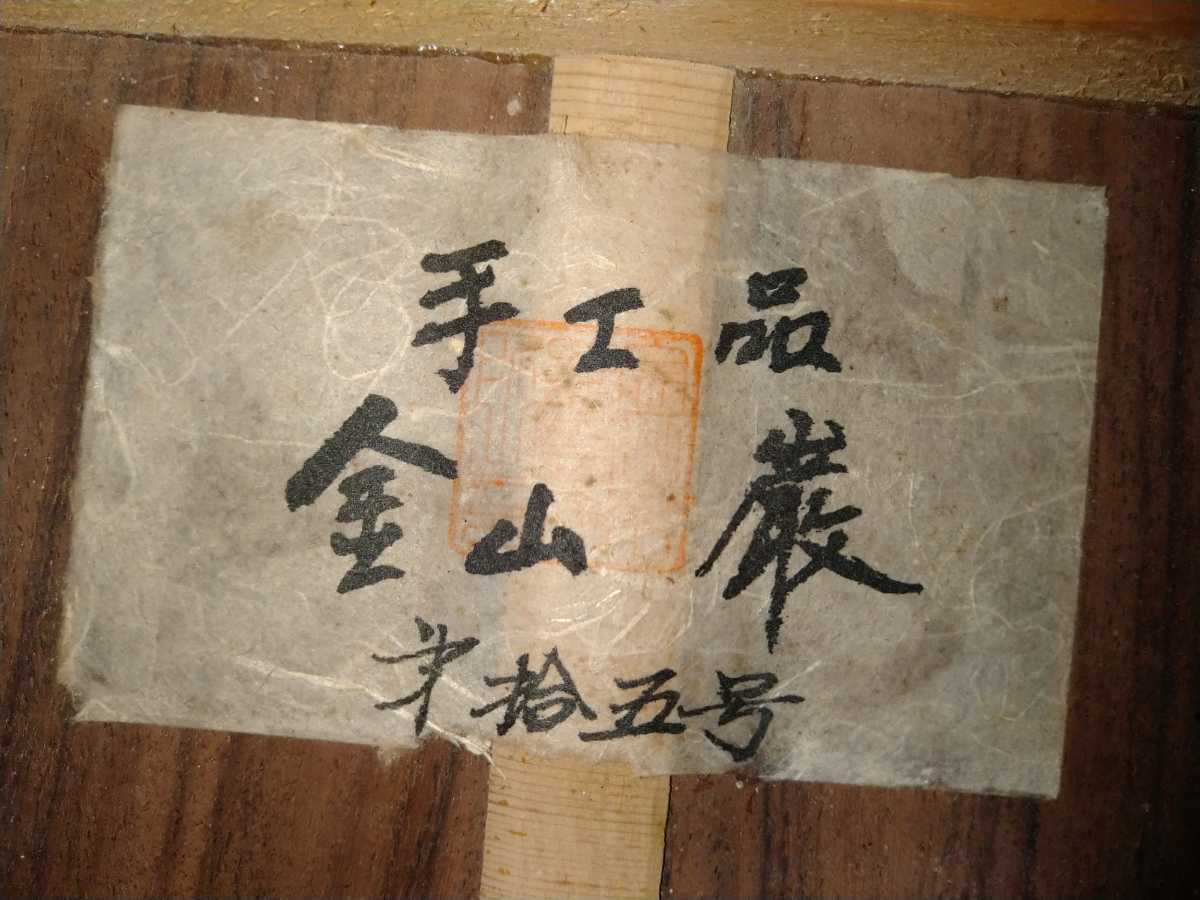 手工品
金山巌
第拾五号